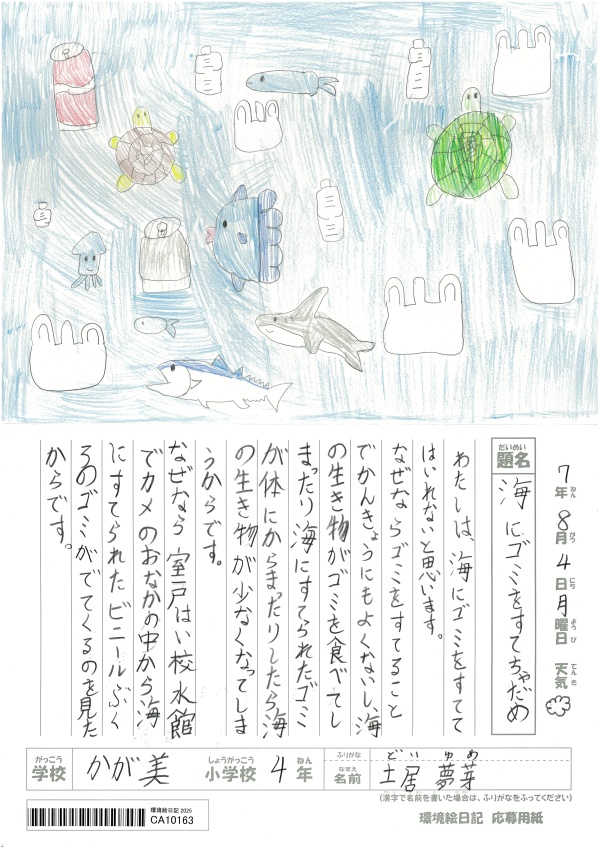 7年8月4日月曜日 天気
ねん がつ にち ようび てんき
だいめい
題名 海にゴミをすてちゃだめ
わたしは、海にゴミをすてて
はいけないと思います。
なぜならゴミをすてること
でかんきょうにもよくないし、海
の生き物がゴミを食べてし
まったり海にすてられたゴミ
が体にからまったりしたら海
の生き物が少なくなってしま
うからです。
なぜなら室戸はい校水館
でカメのおなかの中から海
にすてられたビニールぶく
ろのゴミがでてくるのを見た
からです。
がっこう しょうがっこう ねん ふりがな どい ゆめ
学校 かが美 小学校 4年 なまえ 名前 土居 夢芽
(漢字で名前を書いた場合は、ふりがなをふってください)
環境絵日記 2025
CA10163
環境絵日記 応募用紙